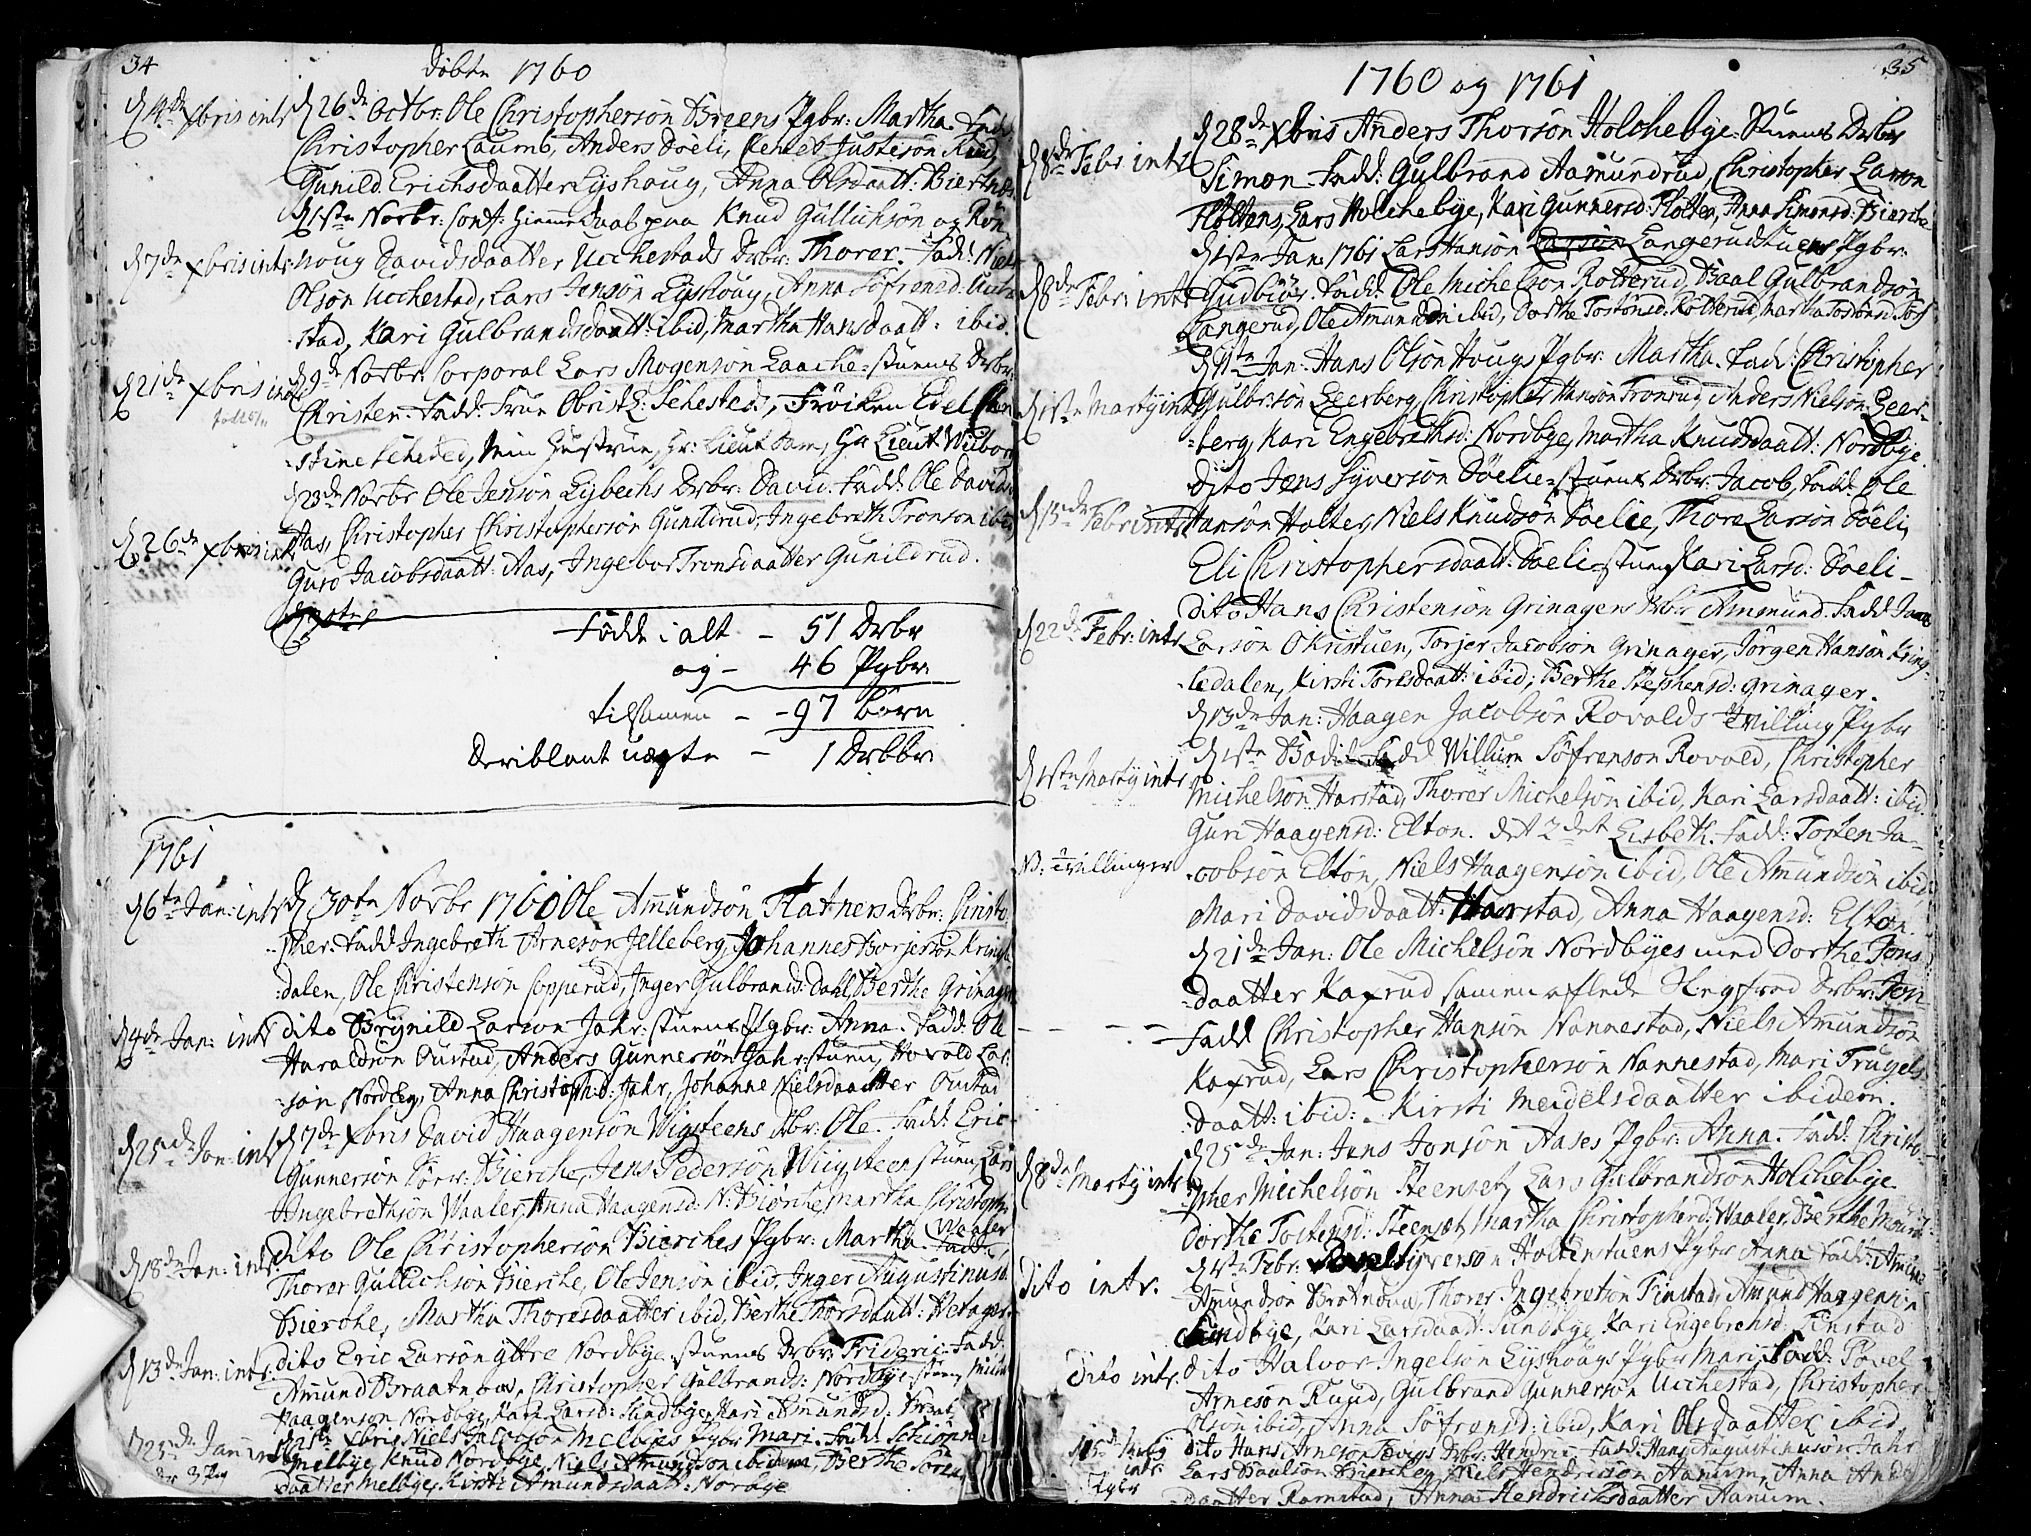 34
Döbte 1760
d 14de Xbris intr d 26de Octbr: Ole Christophersön Breens Pgbr: Martha. Fadd:
Christopher Laumb, Anders Döeli, Justesön Ruud,
Gunild Erichsdaatter Lyshoug, Anna Olsdaatt:
d 1ste Novbr: Conf: Hiemmedaab paa Knud Gullichsön og Rön
d 7de Xbris intr: noug Davidsdaatter Ucchestads Drbr: Thorer. Fadd: Niels
Olsön Ucchestad, Lars Jensön Lyshoug, Anna Söfrensd: Ucche
stad, Kari Gulbrandsdaatt: ibid, Martha Hansdaatt: ibid.
d 21de Xbris intr d 9de Novbr: Corporal Lars Mogensön Laache-stuens Drbr:
Christen. Fadd: Frue Obristl: Sehested, Fröiken Edel Chri
stine Sehested, Min Hustrue, Hr: Lieut Dam, Hr Lieut Wiborg
d 23de Novbr Ole Jensön Lybechs Drbr: David. Fadd: Ole Davids
d 26de Xbris intr Aas, Christopher Christophersön Gunildrud, Ingebreth Tronsön ibid
Guro Jacobsdaatt: Aas, Ingebor Tronsdaatter Gunildrud.
Födde i alt - 51 Drbr
og - 46 Pgbr.
tilsamen - 97 börn
Deriblant uægte - 1 Drbbr.
1761
d 6te Jan: intr d 30te Novbr 1760 Ole Amundsön Flatners Drbr: Christo
pher. Fadd Ingebreth Arnesön Jelleberg, Johannes Borjersön Kringle
dalen, Ole Christensön Copperud, Inger Gulbrands: Dahl, Berthe Grinager
d 4de Jan: intr dito Brynild Larson Jahr-stuens Pgbr: Anna. Fadd: Ole
Haraldsön Oustad, Anders Gunnersön Jahr-stuen, Hovald Lar
sön Nordby, Anna Christoph:d: Jahr, Johanne Nielsdaatter Oustad
d 25de Jan: intr d 7de Xbris David Haagensön Wigsteens Dbr: Ole. Fadd: Eric
Gunnersön Sörv: Bierche, Jens Pedersön Wiigsteen stuen, Lars
Ingebrethsön Waaler, Anna Haagensd: N: Biörche, Martha Christoph:
Waaler
d 18de Jan: intr: dito Ole Christophersön Bierches Pgbr: Martha Fadd:
Thorer Gullichsön Bierche, Ole Jensön ibid, Inger Augustinusd:
Bierche, Martha Thoresdaatter ibid, Berthe Thorsdaatt: Hetager
d 13de Jan: intr. dito Eric Larsön yttre Nordbye-stuens Drbr: Frideric. Fadd:
Amund Braatnow, Christopher Gulbrands: Nordbye-stuen, Michel
Haagenson Nordbye, Kari Larsd: Sundbye, Kari Amundsd: Braat
d 25de Jan: intr d 21ste Xbris Niels Jacobsön Melbyes Pgbr Mari. Fadd:
Melbye, Knud Nordbye, Niels Amundsön ibidem, Berthe Sören
daatter Melbye, Kirsti Amundsdaatt: Nordbye
35
1760 og 1761
d 28de Xbris Anders Thorsön Holchebye-stuens Drbr
d 8de Febr intr Simon. Fadd: Gulbrand Aamundrud, Christopher Larson
Floltens, Lars Holchebye, Kari Gunnersd: Flolten, Anna Simonsd: Bierche
d 1ste Jan. 1761 Lars Hansön Langerudstuens Pgbr:
d 8de Febr: intr Gudbiör. Fadd: Ole Michelsön Rotterud, Paal Gulbrandsön
Langerud, Ole Amundsön ibid, Dorthe Tostensd. Rotterud, Martha Tostensd
d 1ste Jan: Hans Olsön Hougs Pgbr: Martha. Fadd: Christopher
d 1ste Martÿ intr Gulbr:sön Leerberg, Christopher Hansön Tronsrud, Anders Nielsön Leer-
berg, Kari Engebrethsd: Nordbye, Martha Knudsdaatt: Nordbye.
dito Jens Syversön Döelie-stuens Drbr: Jacob, Fadd: Ole
d 15de Febr intr Hansön Holter, Niels Knudsön Döelie, Thore Larsön Döeli,
Eli Christophersdaatt: Döeli-stuen, Kari Larsd: Döeli-
dito Hans Christensön Grinagers Drbr Amund. Fadd Jacob
d 22de Febr: intr. Larsön Okristuen, Torjer Jacobsön Grinager, Jörgen Hansön Kring-
ledalen, Kirsti Toresdaatt: ibid; Berthe Stephensd: Grinager.
d 13de Jan: Haagen Jacobsön Rovalds Tvilling Pgbr
d 1ste Bodil. Fadd Willum Söfrenson Rovold, Christopher
d 1ste Martÿ intr Michelsön Harstad, Thorer Michelsön ibid, Kari Larsdaatt: ibid.
Guri Haagensd: Elton. det 2det Lisbeth. Fadd: Tosten Ja-
N: Tvillinger cobsön Elton, Niels Haagensön ibid, Ole Amundsön ibid
Mari Davidsdaatt: Harstad, Anna Haagensd: Elton.
d 21de Jan: Ole Michelsön Nordbyes med Dorthe Jons
daatter Kaxrud samen aflede Slegfred Drbr: Jon
Fadd Christopher Hansön Nannestad, Niels Amundsön
Kaxrud, Lars Christophersön Nannestad, Mari Trugels-
daatt: ibid:. Kirsti Meidelsdaatter ibidem.
d 25de Jan: Jens Jonsön Aases Pgbr: Anna. Fadd: Christo-
d 8de Martÿ intr pher Michelsön Steenset, Lars Gulbrandsön Holchebye
Dorthe Tostensd: Steenset, Martha Christopherd: Waaler, Berthe
d 1ste Febr: Povel Syverson Holtenstuens Pgbr Anna Fadd: Amund
dito intr. Amundsön Brotnow, Thorer Ingebretsön Finstad, Amund Haagensön
Sundbye, Kari Larsdaatt: Sundbye, Kari Engebrethsd: Finstad
dito intr. dito Halvor Ingelsön Lyshougs Pgbr Mari. Fadd: Povel
Arnesön Ruud, Gulbrand Gunnersön Ucchestad, Christopher
Olsön ibid, Anna Söfrensd: ibid, Kari Olsdaatter ibid
d 15de Martÿ intr. dito Hans Arnesön Drbr: Hendric. Fadd: Hans Augustinusön Jahr
Lars Paulsön Bierche, Niels Hendricsön Aanum, Anna And:
daatter Ramstad, Anna Hendrichsdaatter Aanum.